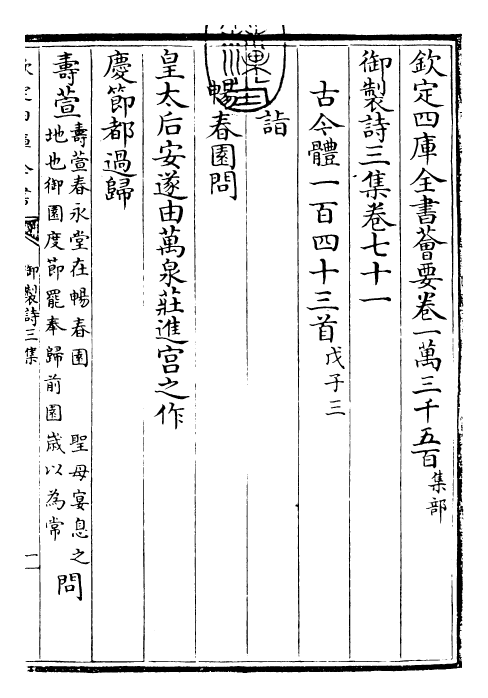 欽定四庫全書薈要卷一萬三千五百集部
御製詩三集卷七十一
古今體一百四十三首戊子三
詣
暢春園問
皇太后安遂由萬泉莊進宮之作
慶節都過歸
壽萱壽萱春永堂在暢春園 聖母宴息之
地也御園度節罷奉歸前園歲以為常問
御製詩三集
一